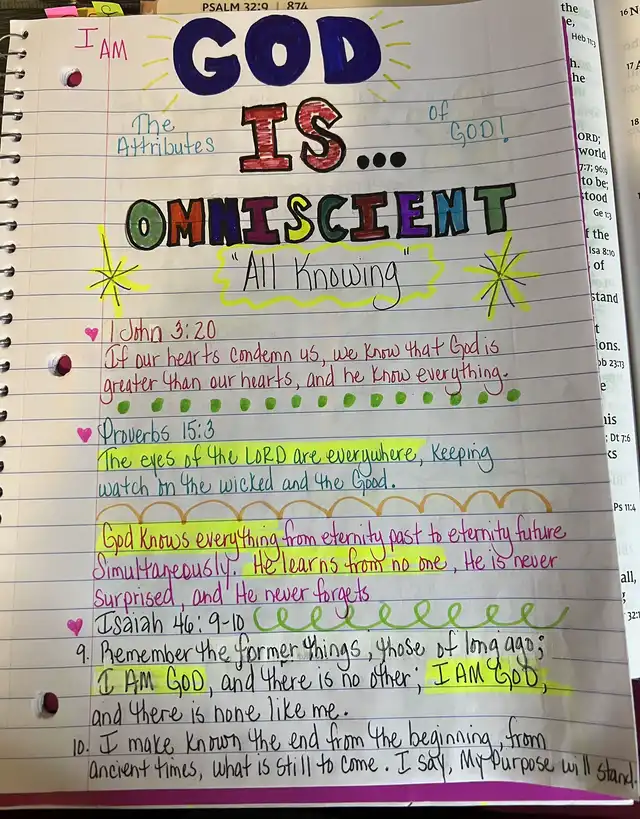 PSALM 32:9 | 874
I AM
GOD
The Attributes
IS...
of GOD!
OMNISCIENT
"All Knowing"
1 John 3:20
If our hearts condemn us, we know that God is
greater than our hearts, and he know everything.
Proverbs 15:3
The eyes of the LORD are everywhere, keeping
watch on the wicked and the Good.
God knows everything from eternity past to eternity future
Simultaneously. He learns from no one, He is never
surprised, and He never forgets
Isaiah 46:9-10
9. Remember the former things, those of long ago;
I AM GOD, and there is no other; I AM GOD,
and there is none like me.
10. I make known the end from the beginning, from
ancient times, what is still to come. I say, My Purpose will stand.
the
e,
Heb 11:3
h.
he
ORD;
world
7:7; 96:9
to be;
stood
Ge 1:3
f the
Isa 8:10
of
stand
t
ions.
ob 23:13
e
his
; Dt 7:6
ks
Ps 11:4
all,
16 N
17 A
18